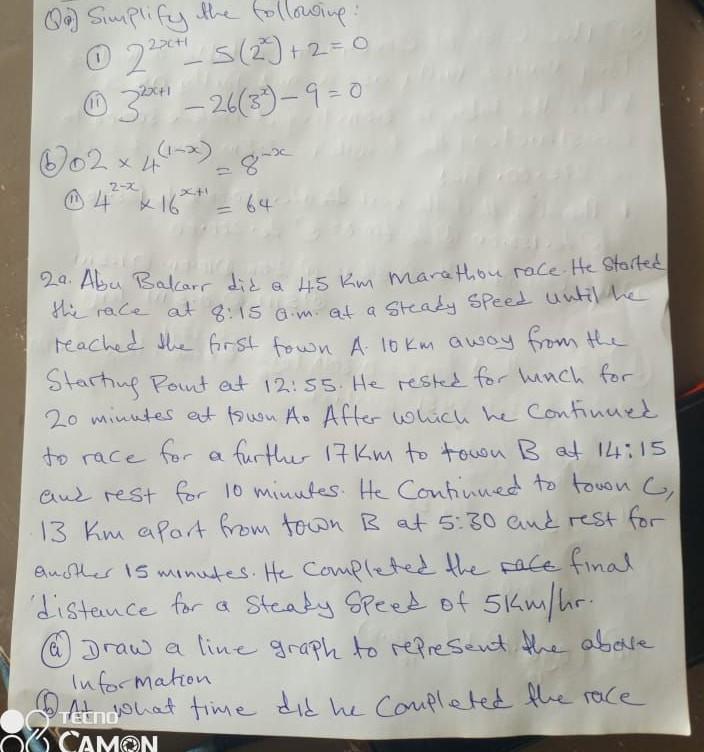 Qa) Simplify the following:
(i) 2^{2x+1} - 5(2^x) + 2 = 0
(ii) 3^{2x+1} - 26(3^x) - 9 = 0
(b) (i) 2 × 4^{(1-x)} = 8^{-x}
(ii) 4^{2-x} × 16^{x+1} = 64
2a. Abu Bakarr did a 45 Km Marathon race. He Started
the race at 8:15 a.m. at a Steady Speed until he
reached the first town A. 10 Km away from the
Starting Point at 12:55. He rested for lunch for
20 minutes at town A. After which he Continued
to race for a further 17 Km to town B at 14:15
and rest for 10 minutes. He Continued to town C,
13 Km apart from town B at 5:30 and rest for
another 15 minutes. He Completed the race final
distance for a Steady Speed of 5Km/hr.
(a) Draw a line graph to represent the above
Information
(b) At what time did he Completed the race
TECNO
CAMON